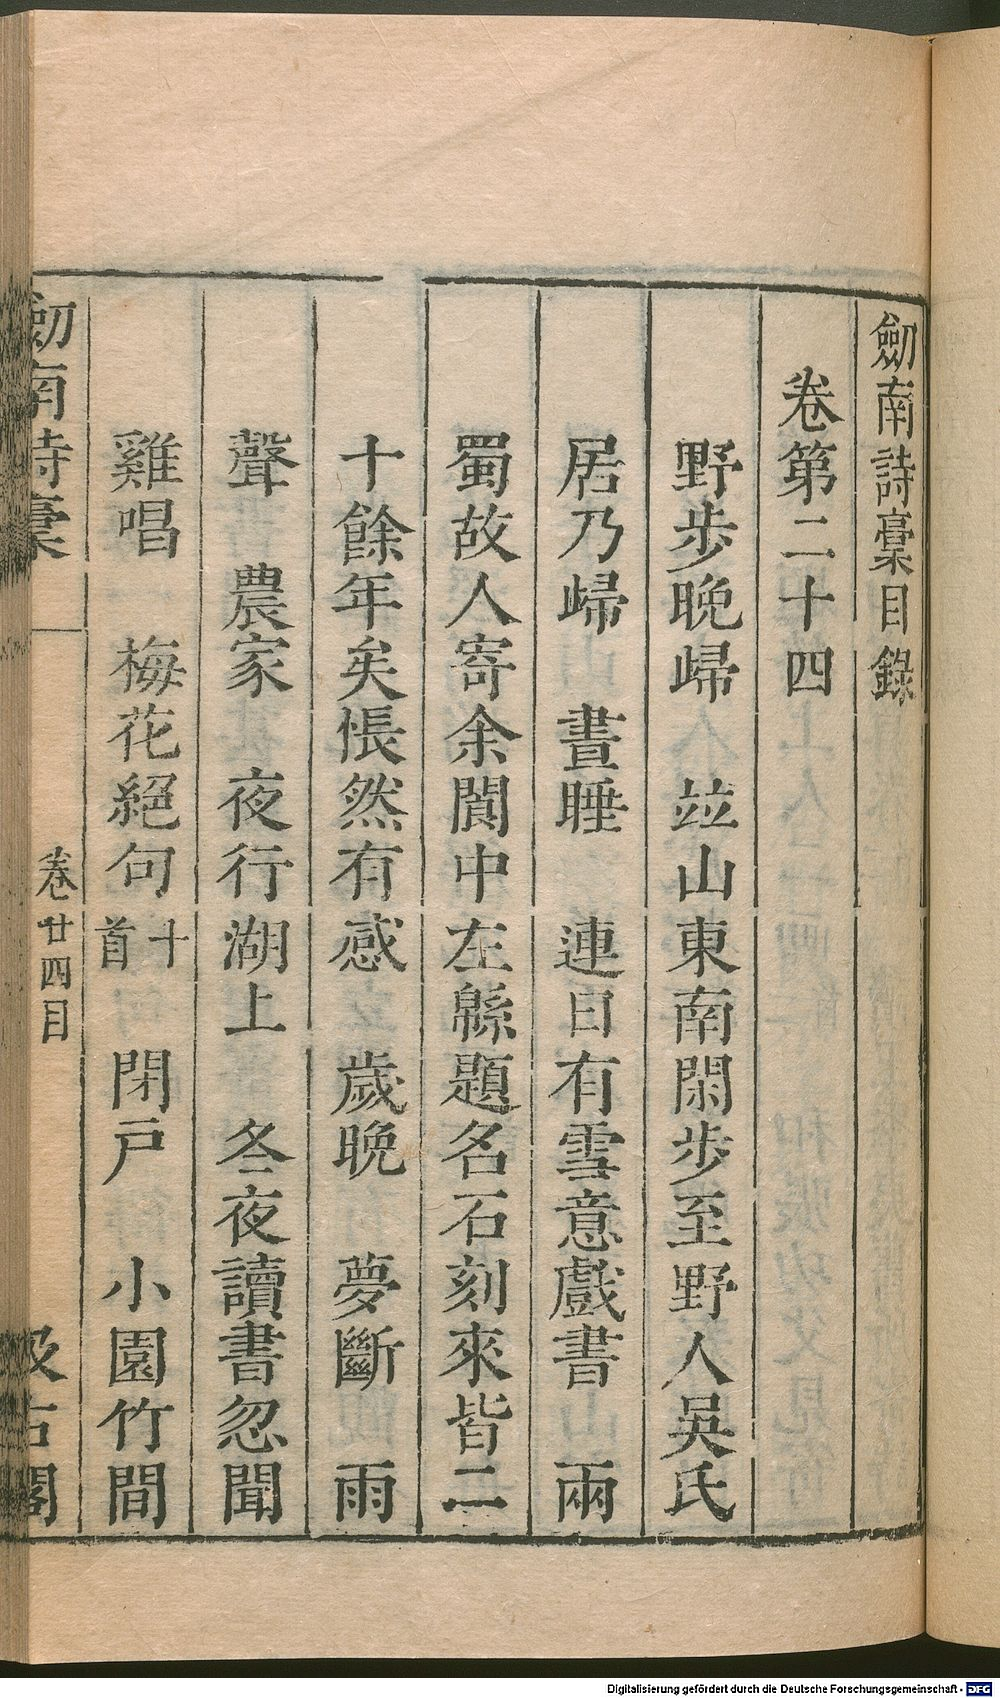 劒南詩稾目錄
卷第二十四
野步晚歸 竝山東南閑步至野人吳氏
居乃歸 晝睡 連日有雪意戲書 兩
蜀故人寄余閬中左緜題名石刻來皆二
十餘年矣悵然有感 歲晚 夢斷 雨
聲 農家 夜行湖上 冬夜讀書忽聞
雞唱 梅花絕句十首 閉戸 小園竹間
劒南詩稾 卷廿四目 汲古閣
Digitalisierung gefördert durch die Deutsche Forschungsgemeinschaft - DFG